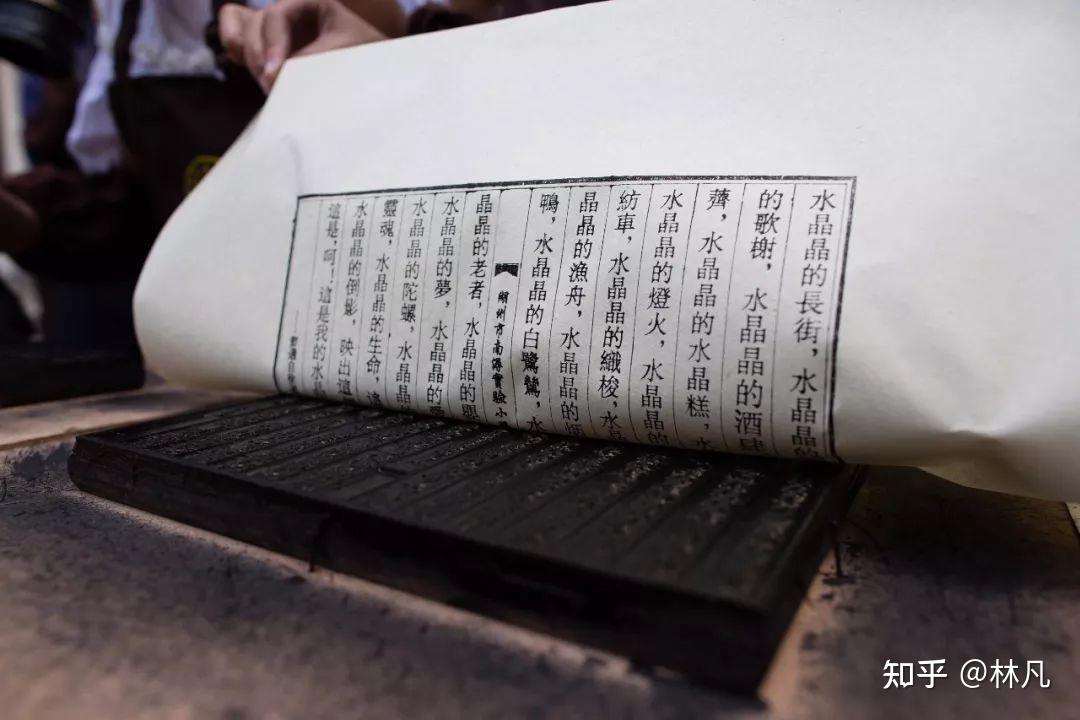 水晶晶的長街，水晶晶的
的歌榭，水晶晶的酒肆
薺，水晶晶的水晶糕，水
水晶晶的燈火，水晶晶的
紡車，水晶晶的織梭，水晶
晶晶的漁舟，水晶晶的
鴨，水晶晶的白鷺鷥，水
湖州市南潯實驗小
晶晶的老者，水晶晶的
水晶晶的夢，水晶晶的
水晶晶的陀螺，水晶晶
靈魂，水晶晶的生命，這
水晶晶的倒影，映出這
這是，呵！這是我的水晶
——節選自徐
知乎 @林凡